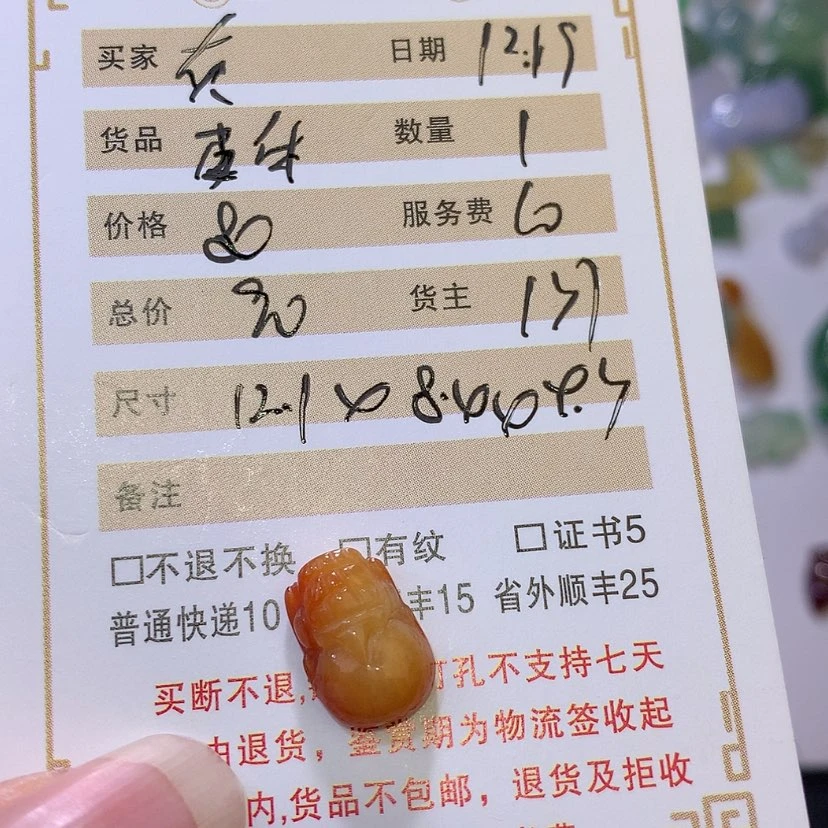 买家 日期 12.19
货品 数量 1
价格 80 服务费 10
总价 90 货主
尺寸 12.1×8.6×4.5
备注
□不退不换 □有纹 □证书5
普通快递10 丰15 省外顺丰25
买断不退, 孔不支持七天
由退货，鉴赏期为物流签收起
内,货品不包邮，退货及拒收